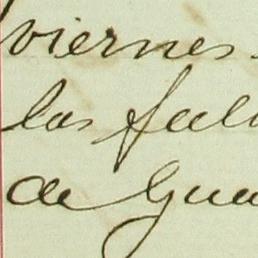 viernes
las fal
de Gua